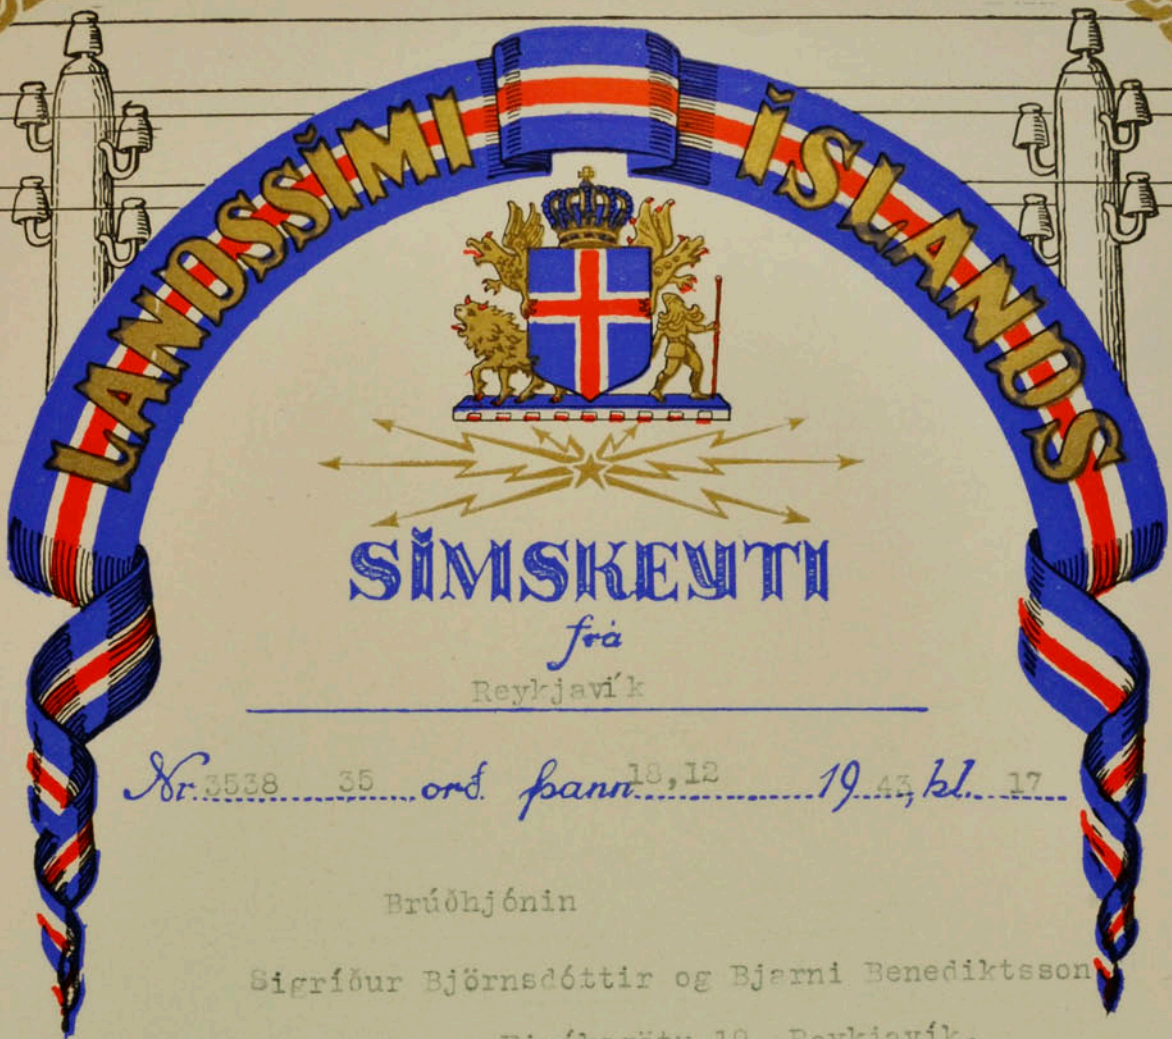 LANDSSÍMI ÍSLANDS
SÍMSKEYTI
frá
Reykjavík
Nr. 3538 35 orð. þann 18,12 19 43, kl. 17
Brúðhjónin
Sigríður Björnsdóttir og Bjarni Benediktsson
19, Reykjavík.